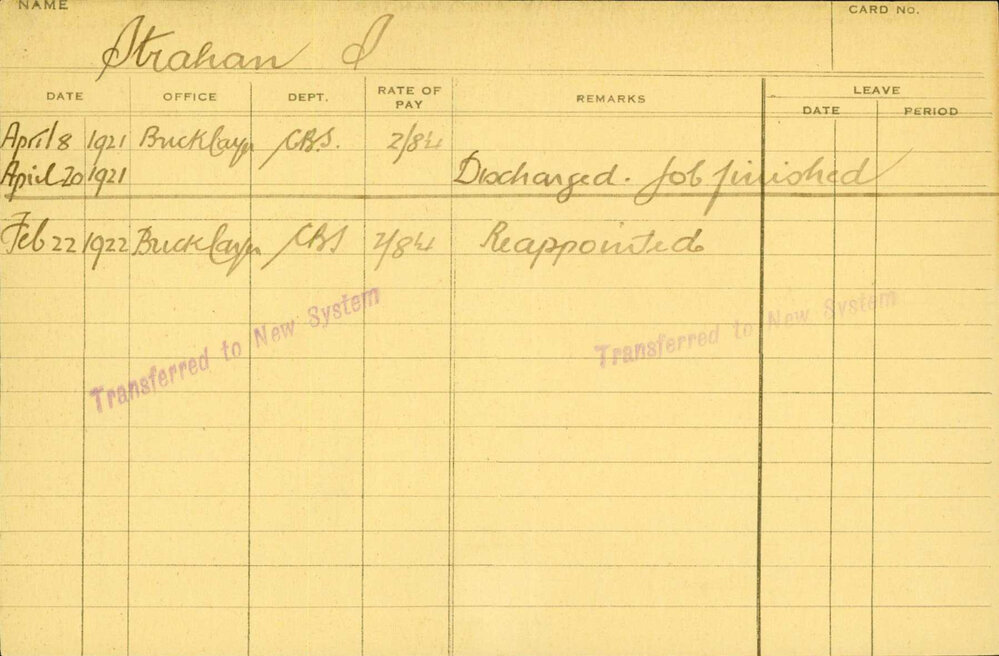 NAME
CARD No.
Strahan J
DATE OFFICE DEPT. RATE OF PAY REMARKS LEAVE
DATE PERIOD
April 8 1921 Bricklayr CBS. 2/8¼
April 20 1921 Discharged. Job finished
Feb 22 1922 Bricklayr CBS 2/8¼ Reappointed
Transferred to New System
Transferred to New System